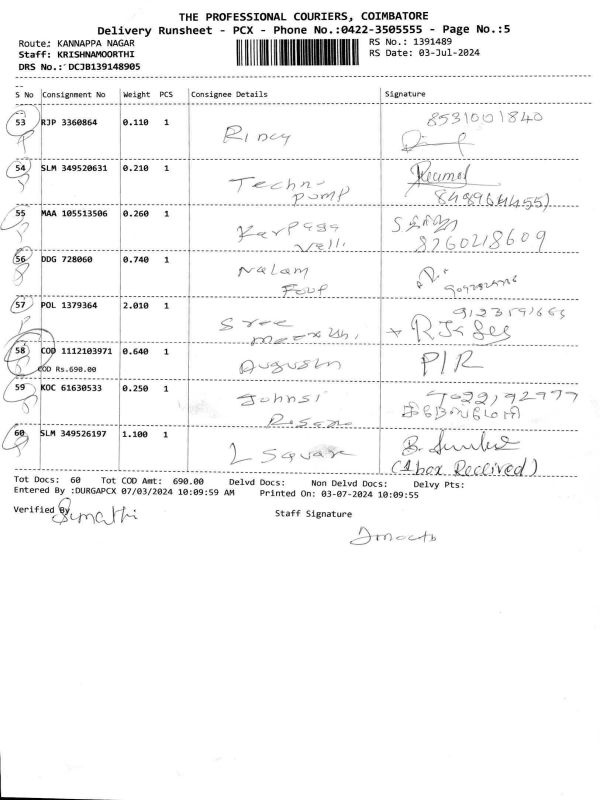 THE PROFESSIONAL COURIERS, COIMBATORE
Delivery Runsheet - PCX - Phone No.:0422-3505555 - Page No.:5
Route: KANNAPPA NAGAR
RS No.: 1391489
Staff: KRISHNAMOORTHI
RS Date: 03-Jul-2024
DRS No.: DCJB139148905
S No Consignment No Weight PCS Consignee Details Signature
53 RJP 3360864 0.110 1 Rincy 8531001840
54 SLM 349520631 0.210 1 Techno-
pump
55 MAA 105513506 0.260 1 Karpaga
Valli 8760218609
56 DDG 728060 0.740 1 Nalam
57 POL 1379364 2.010 1 Sree
58 COD 1112103971 0.640 1 Augustn P/R
COD Rs.690.00
59 KOC 61630533 0.250 1 Johnsi
60 SLM 349526197 1.100 1 L Square B.
(1 box Received)
Tot Docs: 60 Tot COD Amt: 690.00 Delvd Docs: Non Delvd Docs: Delvy Pts:
Entered By :DURGAPCX 07/03/2024 10:09:59 AM Printed On: 03-07-2024 10:09:55
Verified By Sumathi
Staff Signature